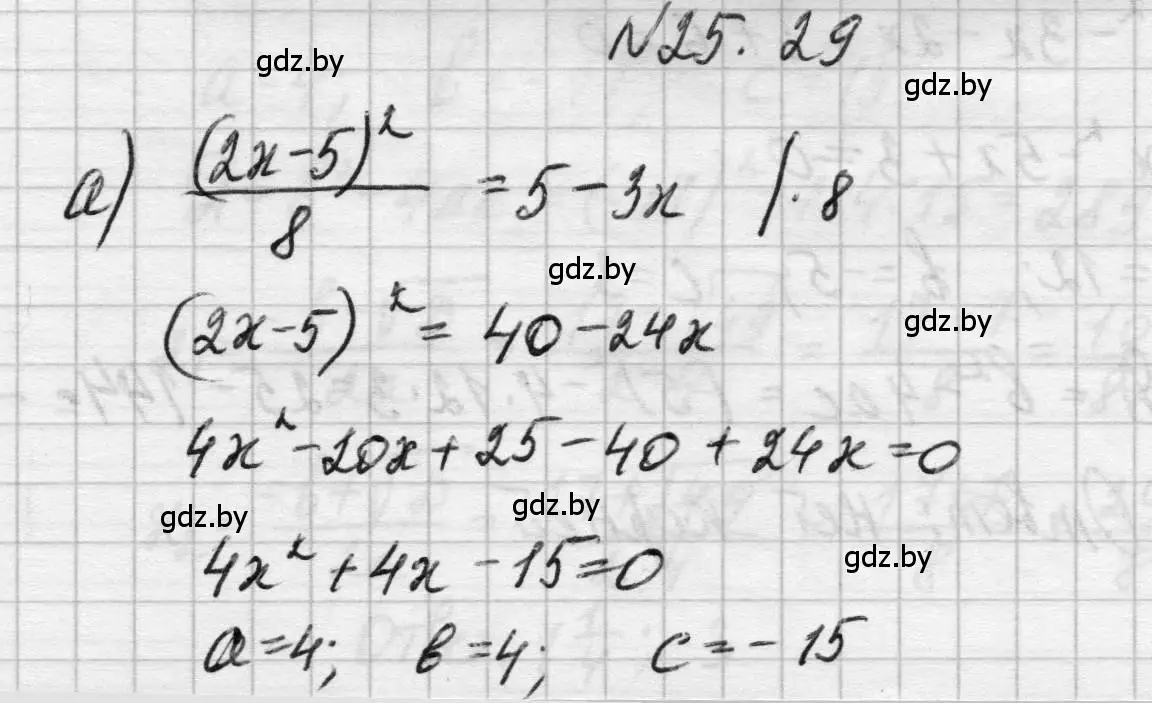 N25.29
gdz.by
gdz.by
а) (2x-5)²/8 = 5-3x |·8
gdz.by
(2x-5)² = 40-24x
gdz.by
4x²-20x+25-40+24x=0
gdz.by
gdz.by
4x²+4x-15=0
gdz.by
a=4; b=4; c=-15